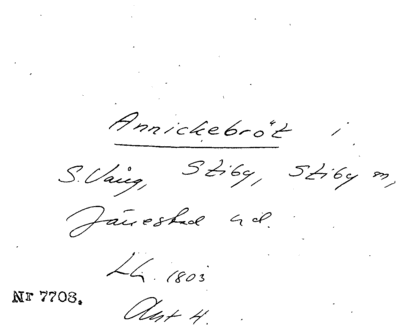 Annickebröt i
S. Vång, Stiby, Stiby m,
Järrestad hd.
Lh. 1803
Akt 4.
Nr 7708.